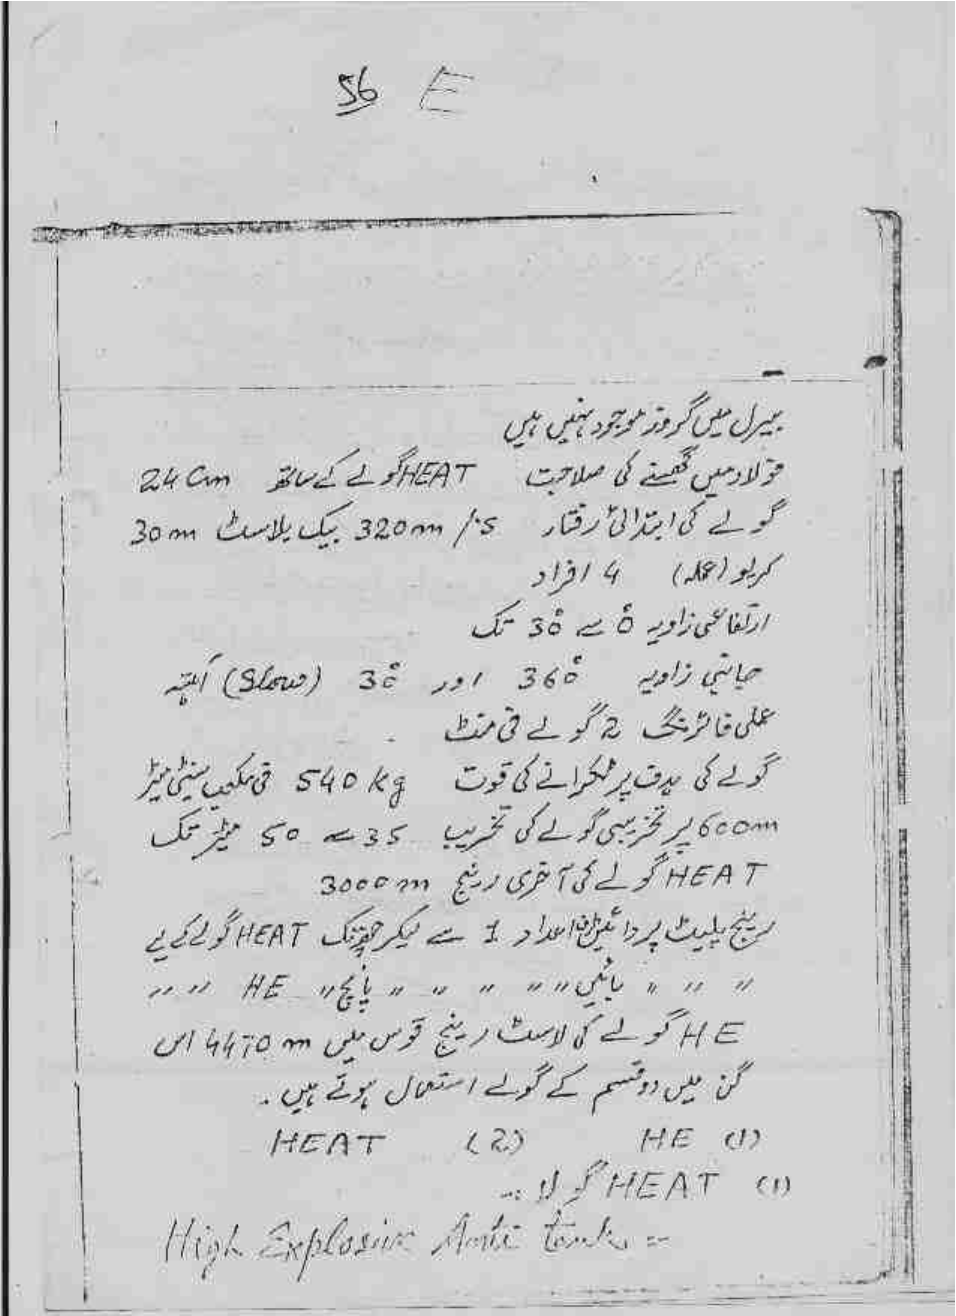 56 E
بیرل میں گروز موجود نہیں ہیں
فولاد میں گھسنے کی صلاحیت HEAT گولے کے ساتھ 24 Cm
گولے کی ابتدائی رفتار 320 m/s بیک بلاسٹ 30 m
کریو (عملہ) 4 افراد
ارتفاعی زاویہ 0° سے 30° تک
جانبی زاویہ 360° اور 30° (Slow) آہستہ
عملی فائرنگ 2 گولے فی منٹ
گولے کی ہدف پر ٹکرانے کی قوت 540 kg فی مکعب سینٹی میٹر
600m پر تخریبی گولے کی تخریب 35 سے 50 میٹر تک
HEAT گولے کی آخری رینج 3000 m
رینج پلیٹ پر دائیں اعداد 1 سے لیکر تک HEAT گولے کے لیے
〃 〃 〃 بائیں 〃 〃 〃 〃 〃 پانچ 〃 HE 〃 〃
HE گولے کی لاسٹ رینج قوس میں 4470 m اس
گن میں دو قسم کے گولے استعمال ہوتے ہیں ۔
(1) HE (2) HEAT
(1) HEAT گولا :-
High Explosive Anti tank =